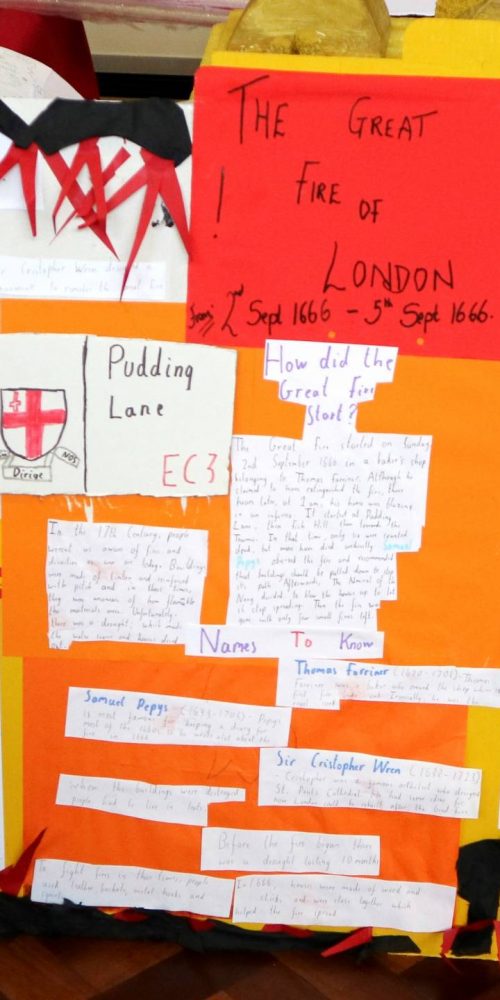 THE GREAT
! FIRE OF
LONDON
from 2nd Sept 1666 - 5th Sept 1666.
Cristopher Wren a
Pudding
Lane
EC3
Dirige NOS
How did the
Great Fire
Start?
The Great Fire started on Sunday
2nd September 1666 in a baker's shop
belonging to Thomas Farriner. Although he
claimed to have extinguished the fire, three
hours later, at 1 am, his house was blazing
It started at Pudding
Lane, then Fish Hill then towards the
In that time, only six were counted
dead, but more have died Samuel
Pepys observed the fire and recommended
that buildings should be pulled down to stop
its path. Afterwards, The
Navy decided to blow the houses up to let
it stop spreading. Then the fire was
gone, with only small fires left.
In the 17th Century, people
weren't as aware of fire and
as we are today. Buildings
were made of timber and reinforced
with pitch and in those times,
they were unaware of how flammable
the materials were. Unfortunately,
there was a draught, which made
the water scarce and houses dried
Names To Know
Thomas Farriner
Farriner was a baker who owned the shop where the
Samuel Pepys
is most famous for keeping a diary for
most of the 1660s about the
fire in 1666
Sir Cristopher Wren
Cristopher was a architect who designed
St. Pauls Cathedral. had some ideas for
how London could be rebuilt after the Great Fire
When the buildings were destroyed
people had to live in tents
Before the fire began there
was a draught lasting 10 months
To fight fires in those times, people
used leather buckets, metal hooks and
In 1666, houses were made of wood and
and were close together which
helped the fire spread